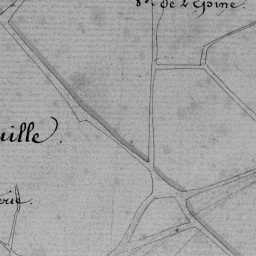 de l'Epine.
uille.
erie.